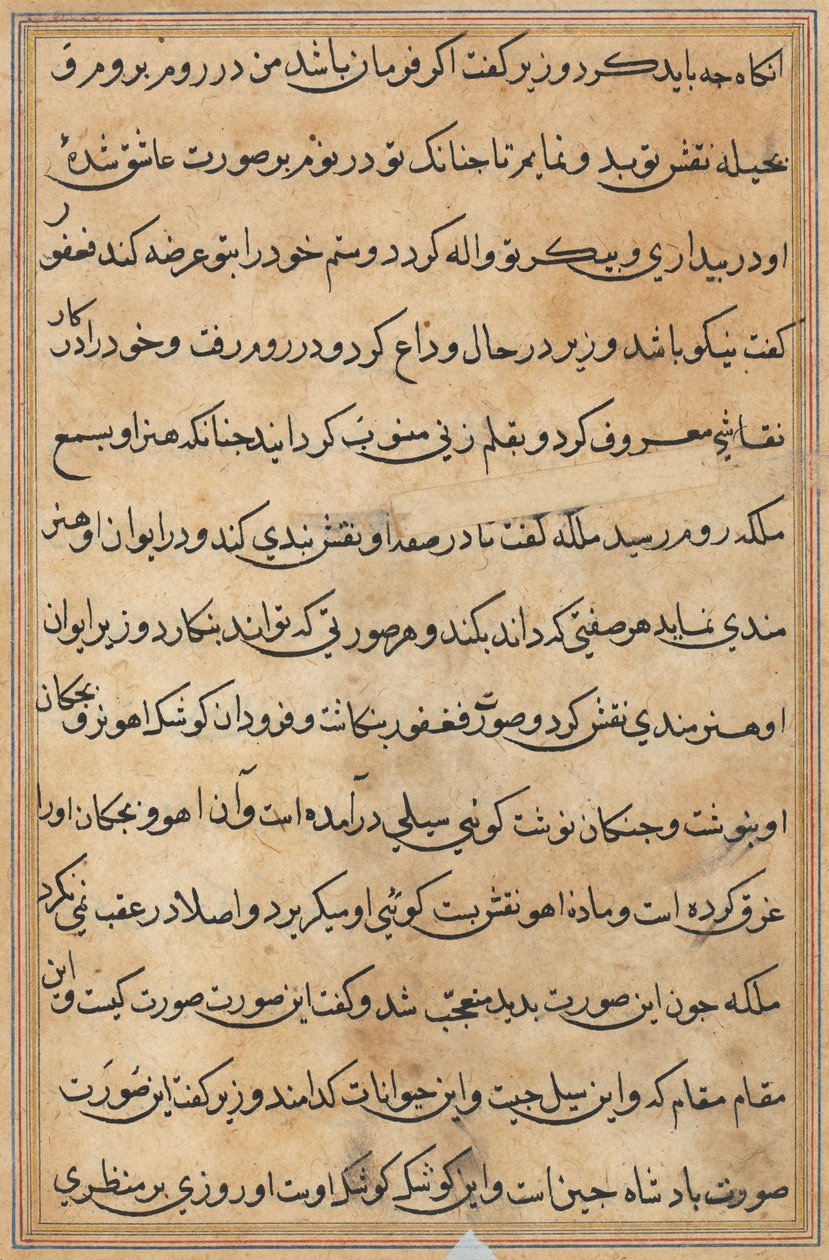 انکاه جه باید کرد وزیر کفت اکر فومان باشد من در روم بروم و
بحیله نقش تو بد و نمایم تا جنانک تو در نوم بر صورت عاشق شدهٔ
او در بیداری و بیکر تو واله کردد و ستم خود را بتو عرضه کند فغفور
کفت نیکو باشد وزیر در حال وداع کرد و در روم رفت و خود را در کار
نقاشی معروف کرد و بقلم زنی منسوب کردانید جنانکه هنر او بسمع
ملکه روم رسید ملکه کفت تا در صفه او نقش بندی کند و در ایوان او هنر
مندی نماید هر صفتی که داند بکند و هر صورتی که تواند بنکارد وزیر ایوان
او هنرمندی نقش کرد و صورت فغفور بنکاشت و فرود ان کوشک اهو نر و بجکان
او بنوشت و جنکان نوشت کوئی سیلی درآمده است و آن اهو و بجکان او را
غرق کرده است و مادۀ اهو نقش بست کوئی او میکریزد و اصلا در عقب نمی نکرد
ملکه جون این صورت بدید متعجب شد و کفت این صورت صورت کیست و این
مقام مقام که و این سیل جیست و این حیوانات کدامند وزیر کفت این صورت
صورت بادشاه جین است و این کوشک کوشک اوست او روزی بر منظری